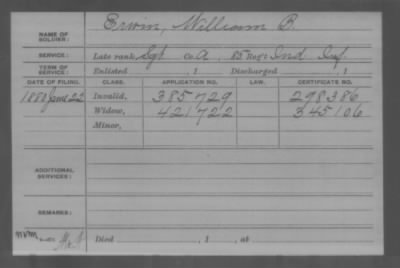 NAME OF SOLDIER: Erwin, William B.
SERVICE: Late rank, Sgt Co. A, 85 Reg't Ind Inf.
TERM OF SERVICE: Enlisted , 1 Discharged , 1
DATE OF FILING. CLASS. APPLICATION NO. LAW. CERTIFICATE NO.
1880 June 22 Invalid, 385729 298386
Widow, 421722 345106
Minor,
ADDITIONAL SERVICES:
REMARKS:
Died , 1 , at